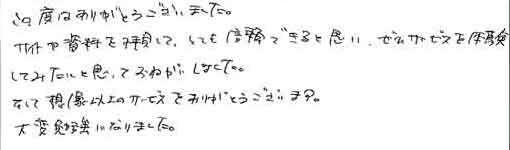 この度はありがとうございました。
サイトや資料を拝見して、とても信頼できると思い、ぜひサービスを体験
してみたいと思っておねがいしました。
そして想像以上のサービスをありがとうございます。
大変勉強になりました。